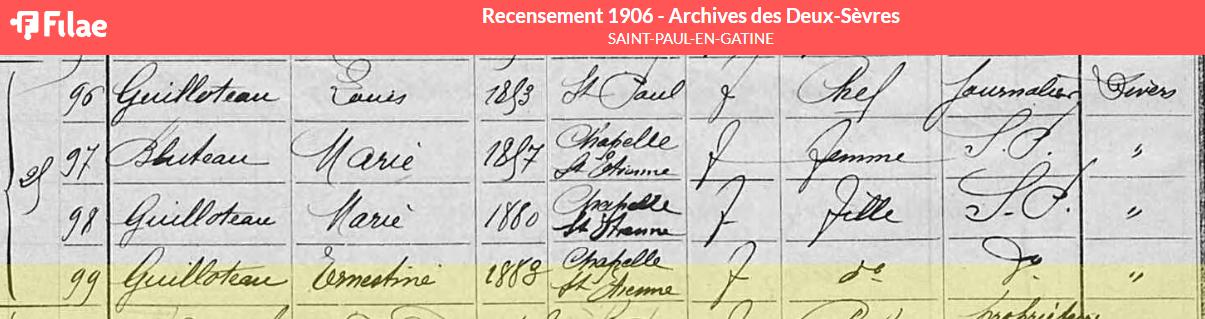 Filae
Recensement 1906 - Archives des Deux-Sèvres
SAINT-PAUL-EN-GATINE
96 Guilloteau Louis 1853 St Paul f Chef Journalier Divers
25 97 Bluteau Marie 1857 Chapelle St Etienne f femme S.P. "
98 Guilloteau Marie 1880 Chapelle St Etienne f fille S.P. "
99 Guilloteau Ernestine 1883 Chapelle St Etienne f do do "